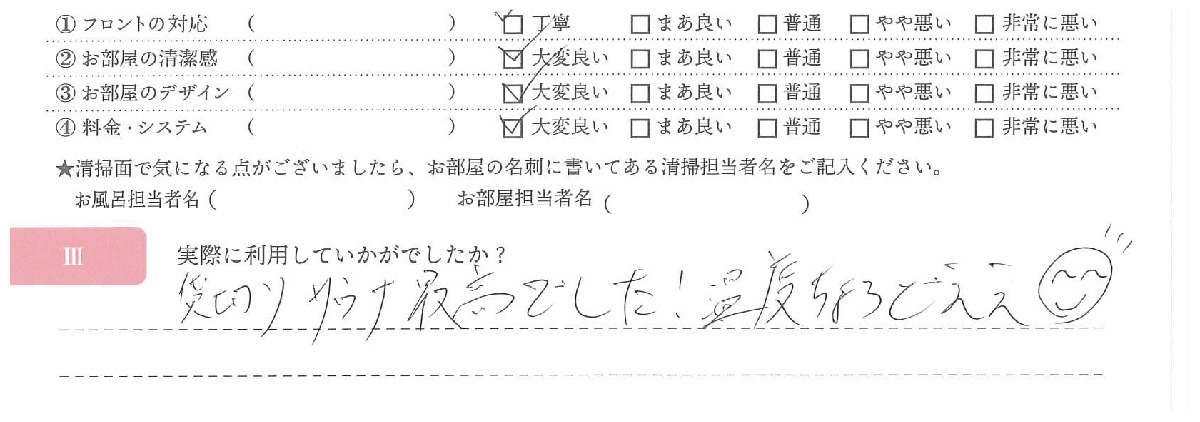 ①フロントの対応 ( ) ☑丁寧 □まあ良い □普通 □やや悪い □非常に悪い
②お部屋の清潔感 ( ) ☑大変良い □まあ良い □普通 □やや悪い □非常に悪い
③お部屋のデザイン ( ) ☑大変良い □まあ良い □普通 □やや悪い □非常に悪い
④料金・システム ( ) ☑大変良い □まあ良い □普通 □やや悪い □非常に悪い
★清掃面で気になる点がございましたら、お部屋の名刺に書いてある清掃担当者名をご記入ください。
お風呂担当者名 ( ) お部屋担当者名 ( )
III 実際に利用していかがでしたか？
貸切りサウナ最高でした！温度ちょうどええ